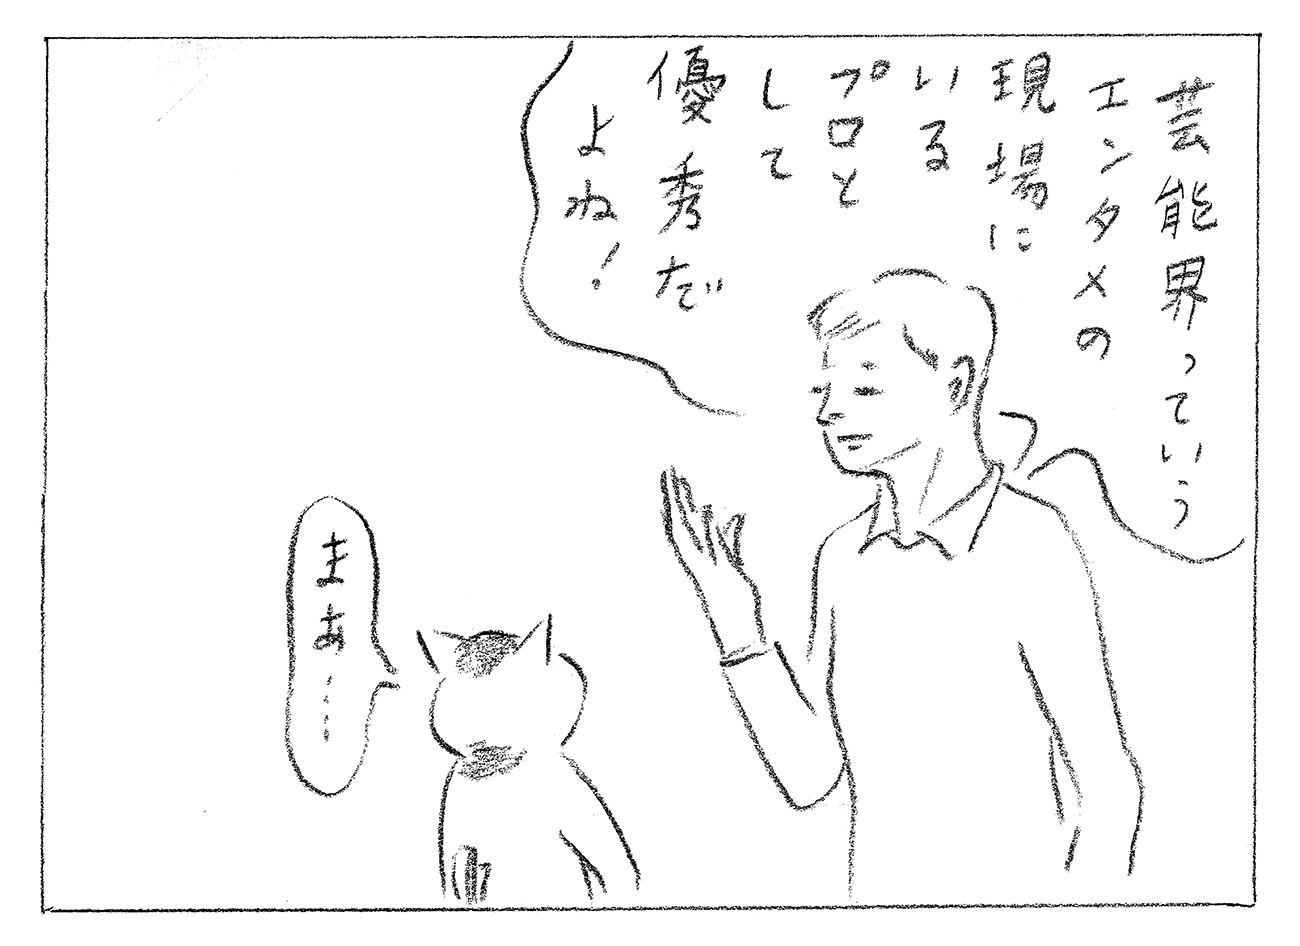 芸能界っていう
エンタメの
現場に
いる
プロと
して
優秀だ
よね!
まぁ……